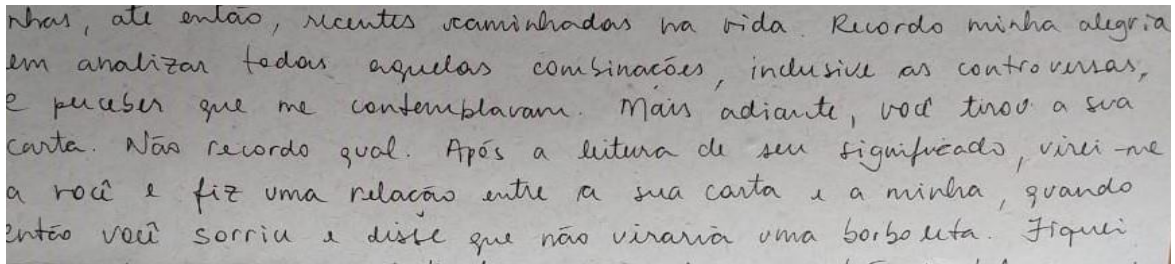 nhas, até então, recentes caminhadas na vida. Recordo minha alegria
em analizar todas aquelas combinacões, inclusive as controversas,
e perceber que me contemplavam. Mais adiante, você tirou a sua
carta. Não recordo qual. Após a leitura de seu significado, virei-me
a você e fiz uma relacão entre a sua carta e a minha, quando
então você sorriu e disse que não viraria uma borboleta. Fiquei